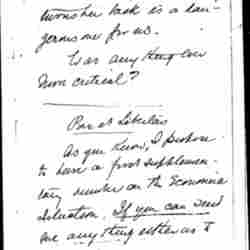 turns her back is a dan-
gerous one for us.
Was anything ever
more critical?
As you know, I propose
to have a first supplemen-
tary number on the Economic
situation. If you can send
me anything either as to